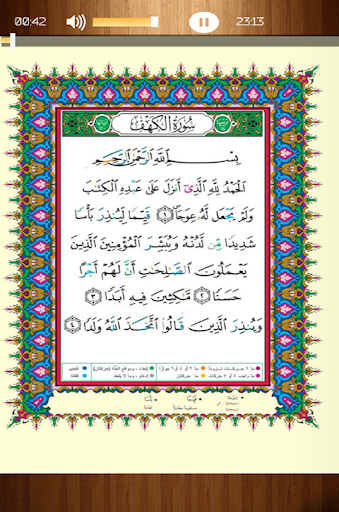 00:42
23:13
سُورَةُ الكَهْفِ
بِسْمِ اللَّهِ الرَّحْمَٰنِ الرَّحِيمِ
الْحَمْدُ لِلَّهِ الَّذِي أَنزَلَ عَلَىٰ عَبْدِهِ الْكِتَابَ
وَلَمْ يَجْعَل لَّهُ عِوَجًا ١ قَيِّمًا لِّيُنذِرَ بَأْسًا
شَدِيدًا مِّن لَّدُنْهُ وَيُبَشِّرَ الْمُؤْمِنِينَ الَّذِينَ
يَعْمَلُونَ الصَّالِحَاتِ أَنَّ لَهُمْ أَجْرًا
حَسَنًا ٢ مَّاكِثِينَ فِيهِ أَبَدًا ٣
وَيُنذِرَ الَّذِينَ قَالُوا اتَّخَذَ اللَّهُ وَلَدًا ٤